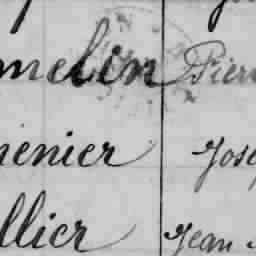 melin Pier
enier Jose
llier Jean